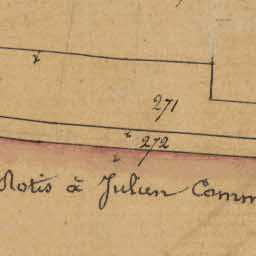 271
272
Rotis à Julien Comm